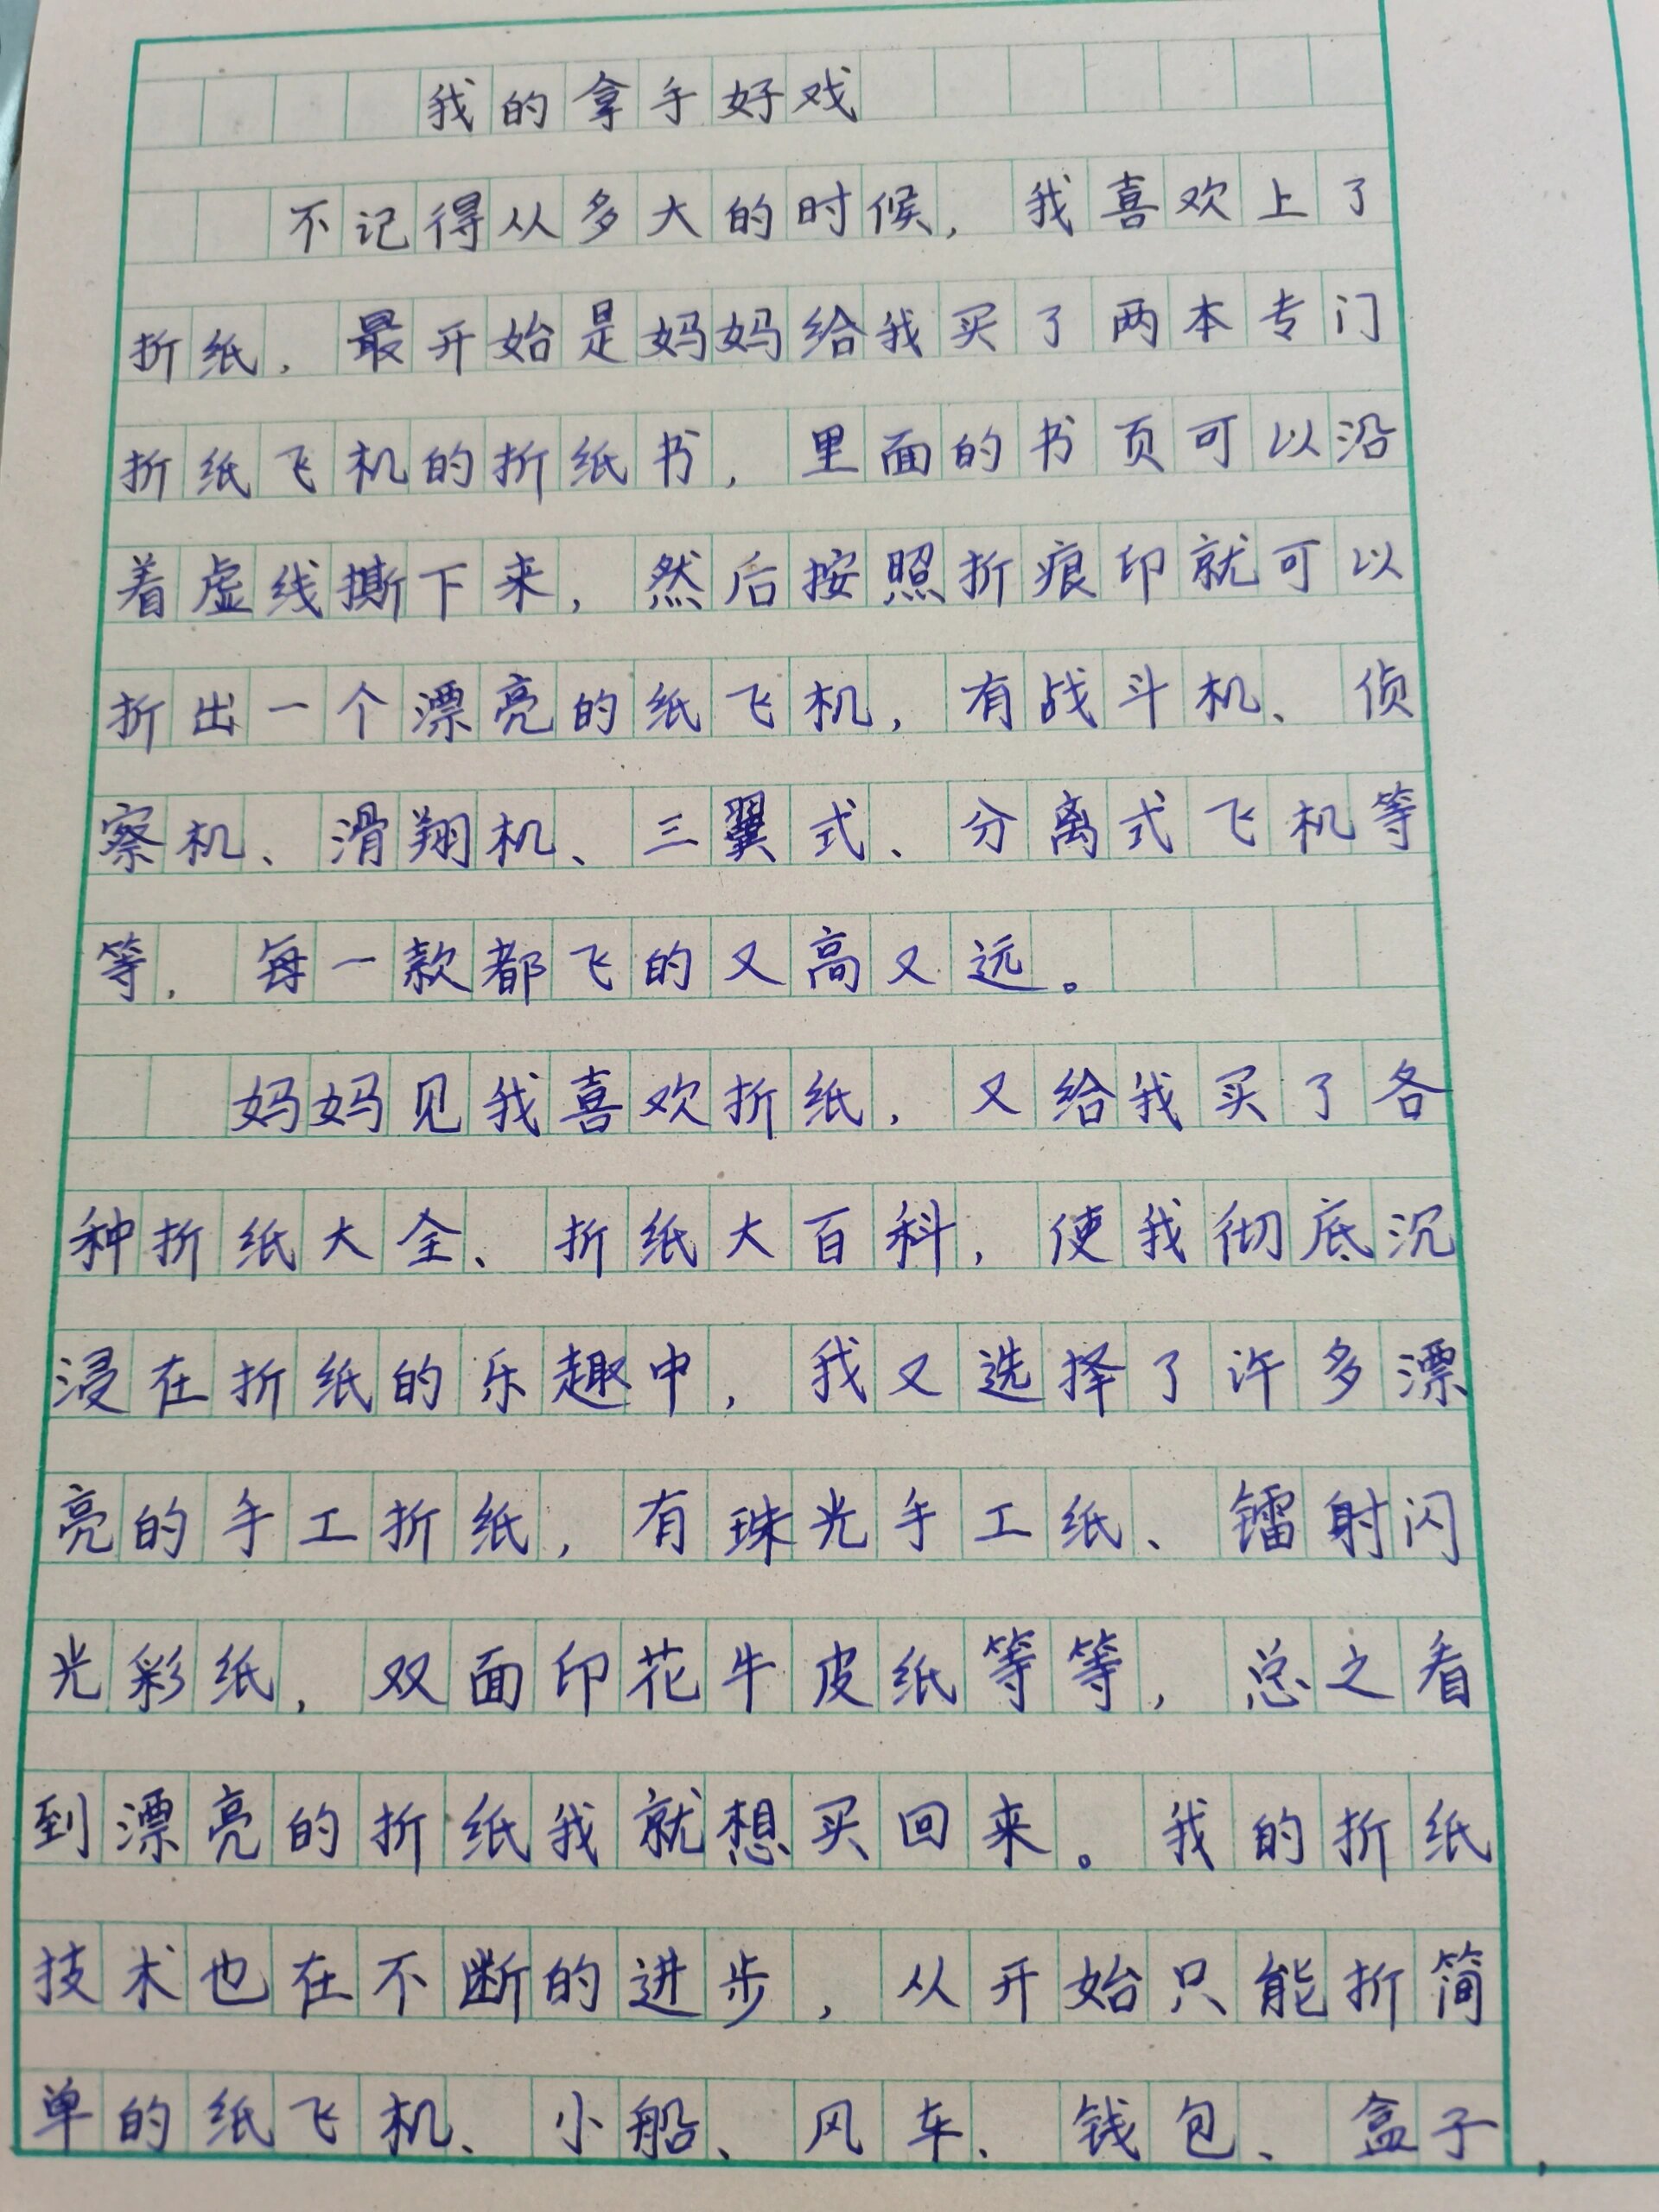 我的拿手好戏
不记得从多大的时候，我喜欢上了
折纸，最开始是妈妈给我买了两本专门
折纸飞机的折纸书，里面的书页可以沿
着虚线撕下来，然后按照折痕印就可以
折出一个漂亮的纸飞机，有战斗机、侦
察机、滑翔机、三翼式、分离式飞机等
等，每一款都飞的又高又远。
妈妈见我喜欢折纸，又给我买了各
种折纸大全、折纸大百科，使我彻底沉
浸在折纸的乐趣中，我又选择了许多漂
亮的手工折纸，有珠光手工纸、镭射闪
光彩纸，双面印花牛皮纸等等，总之看
到漂亮的折纸我就想买回来。我的折纸
技术也在不断的进步，从开始只能折简
单的纸飞机、小船、风车、钱包、盒子，